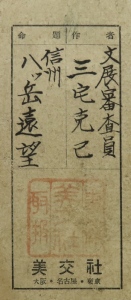 命題作者
文展審査員
三宅克己
信州
八ヶ岳遠望
美交社
大阪・名古屋・東京